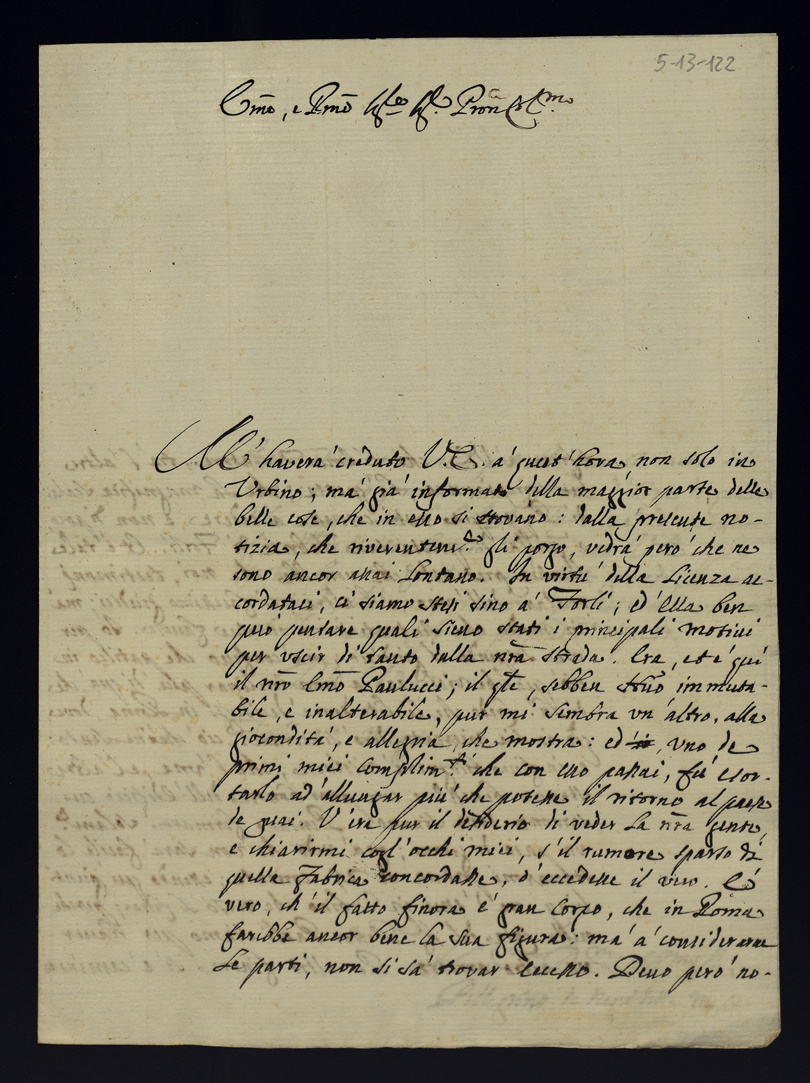 5-13-122
Em̃o, e Rm̃o Sig.re Sig.r Pron̄ Col.mo
M'haverà creduto V.E. à quest'hora, non solo in
Urbino; mà già informato della maggior parte delle
belle cose, che in esso si trovano: dalla presente no-
tizia, che riverentem.te gli porgo, vedrà però che ne
sono ancor assai lontano. In virtù della Licenza ac-
cordataci, ci siamo stesi sino à Forlì; ed Ella ben
può pensare quali sieno stati i principali motivi
per uscir di tanto dalla nrã strada. Era, et è quì
il nrõ Em̃o Paulucci; il qle, sebben sẽmp immuta-
bile, e inalterabile, pur mi sembra un'altro, alla
giocondità, e allegria, che mostra: ed uno de
primi miei complim.ti che con esso passai, fù esor-
tarlo ad'allungar più che potesse il ritorno al paese
de guai. V'era pur il desiderio di veder la nrã gente,
e chiarirmi cogl'occhi miei, s'il rumore sparso di
quella Fabrica concordasse, ò eccedesse il vero. È
vero, ch'il fatto finora è gran Corpo, che in Roma
farebbe ancor bene la sua figura: mà à considerarne
le parti, non si sà trovar eccesso. Devo però no-